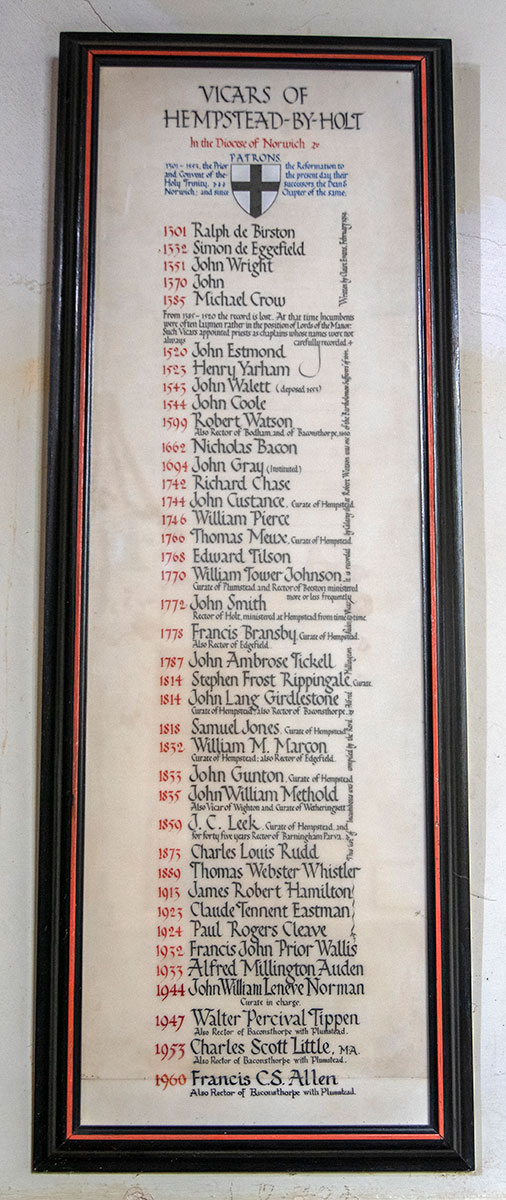 VICARS OF
HEMPSTEAD-BY-HOLT
In the Diocese of Norwich
PATRONS
the Prior
and Convent of the
Holy Trinity,
Norwich; and since
the Reformation to
the present day their
successors, the Dean &
Chapter of the same;
1301 Ralph de Birston
1332 Simon de Eggefield
1351 John Wright
1370 John
1385 Michael Crow
From 1385-1520 the record is lost. At that time Incumbents
were often laymen rather in the position of Lords of the Manor:
Such Vicars appointed priests as chaplains whose names were not
always carefully recorded.
1520 John Estmond
1523 Henry Yarham
1543 John Walett (deposed
1544 John Coole
1599 Robert Watson
Also Rector of Bodham, and of Baconsthorpe,
1662 Nicholas Bacon
1694 John Gray (Instituted)
1742 Richard Chase
1744 John Custance. Curate of Hempstead.
1746 William Pierce
1766 Thomas Meux, Curate of Hempstead.
1768 Edward Tilson
1770 William Tower Johnson
Curate of Plumstead and Rector of Beeston ministered
more or less frequently
1772 John Smith
Rector of Holt, ministered at Hempstead from time to time
1778 Francis Bransby, Curate of Hempstead.
Also Rector of Edgefield.
1787 John Ambrose Tickell
1814 Stephen Frost Rippingale, Curate
1814 John Lang Girdlestone
Curate of Hempstead; also Rector of Baconsthorpe.
1818 Samuel Jones. Curate of Hempstead
1832 William M. Marcon
Curate of Hempstead; also Rector of Edgefield.
1833 John Gunton. Curate of Hempstead
1835 John William Methold
Also Vicar of Wighton and Curate of Wetheringsett
1859 J. C. Leek. Curate of Hempstead, and
for forty five years Rector of Barningham Parva.
1873 Charles Louis Rudd
1889 Thomas Webster Whistler
1913 James Robert Hamilton
1923 Claude Tennent Eastman
1924 Paul Rogers Cleave
1932 Francis John Prior Wallis
1933 Alfred Millington Auden
1944 John William Leneve Norman
Curate in charge.
1947 Walter Percival Tippen
Also Rector of Baconsthorpe with Plumstead.
1953 Charles Scott Little, MA.
Also Rector of Baconsthorpe with Plumstead.
1960 Francis C.S. Allen
Also Rector of Baconsthorpe with Plumstead.
This list of Incumbents was compiled by the Revd. Alfred Millington
Robert Watson was one of the Bartholomew Sufferers
Written by Claret Evans, February